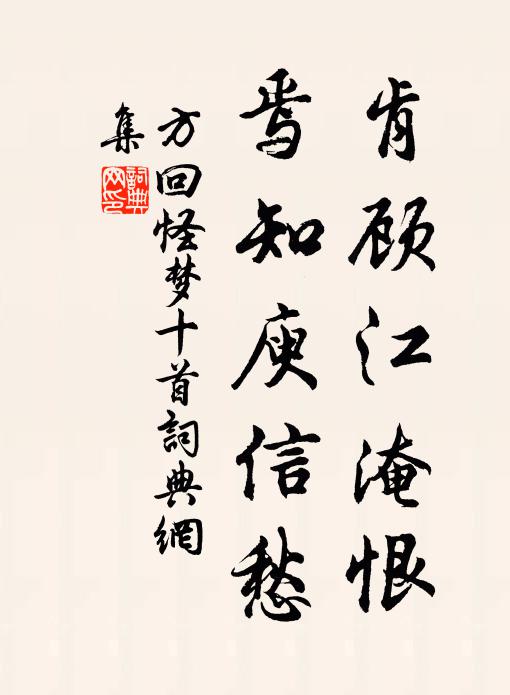 肯顾江淹恨
焉知庾信愁
方回怪梦十首詞典網
集
詞典网印